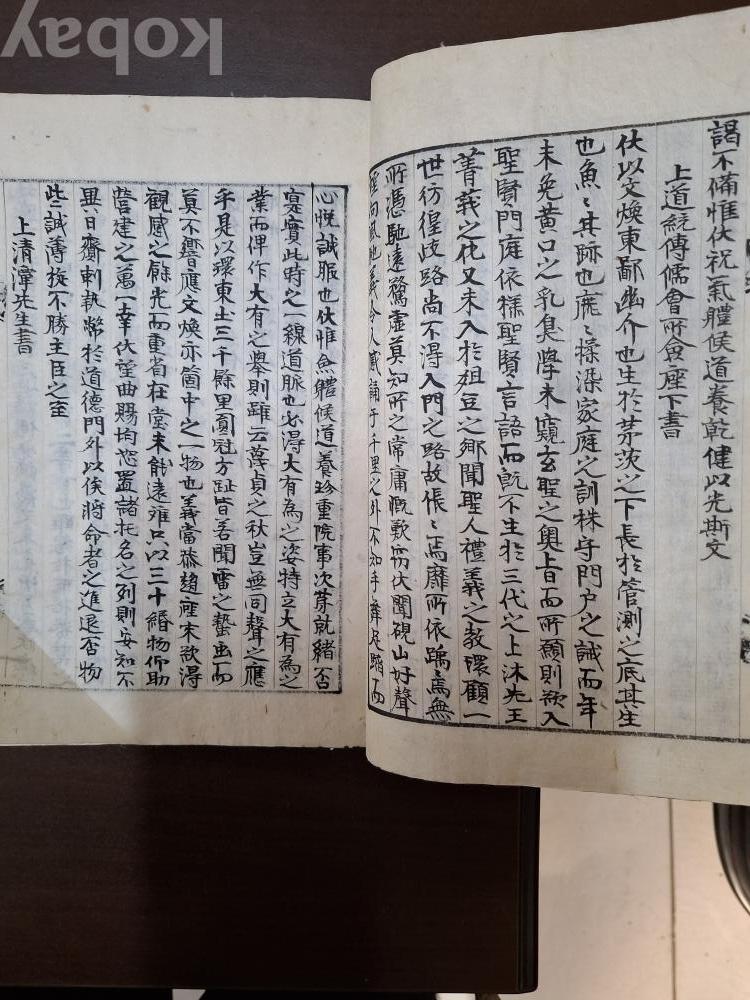 謁不備惟伏祝氣體候道養乾健以光斯文
上道統傳儒會所僉座下書
伏以文煥東鄙幽介也生於茅茨之下長於管測之底其生
也魚〻其跡也鹿〻揉染家庭之訓株守門户之誠而年
未免黄口之乳臭學未窺玄聖之奥旨而所願則欲入
聖賢門庭依樣聖賢言語而旣不生於三代之上沐先王
菁莪之化又未入於俎豆之鄕聞聖人禮義之敎環顧一
世彷徨歧路尚不得入門之路故倀〻焉靡所依踽焉無
所憑馳遠騖虚莫知所之常庸慨歎而伏聞硯山好聲
令人感誦于千里之外不知手舞足蹈而
心悅誠服也伏惟僉體候道養珍重院事次第就緒否
寔實此時之一線道脉也必得大有為之姿特立大有為之
業而俾作大有之擧則雖云蔑貞之秋豈無同聲之應
乎是以環東土三千餘里圓冠方趾皆若聞雷之蟄虫而
莫不響應文煥亦箇中之一物也義當趨座末欲得
觀感之餘光而重省在堂未能遠離只以三十緡物仰助
營建之萬一幸伏望曲賜均恕置諸托名之列則安知不
異日齋刺執幣於道德門外以俟將命者之進退否物
些誠薄旋不勝主臣之至
上清潭先生書
kobay